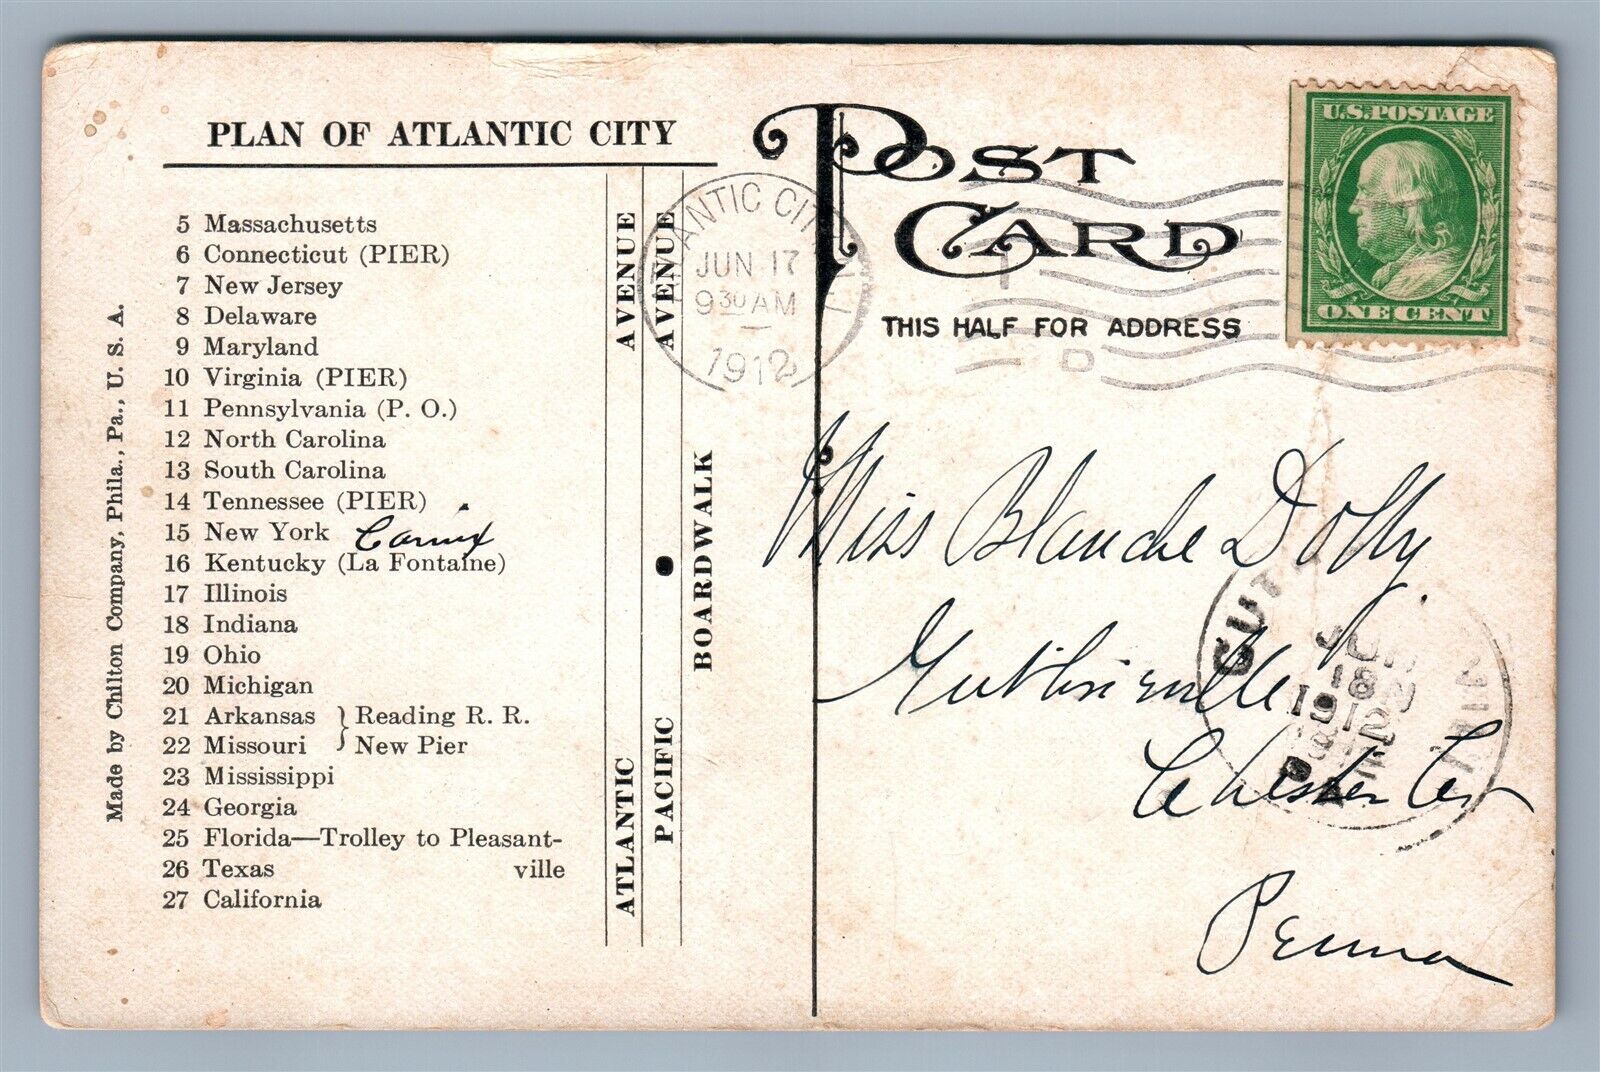 PLAN OF ATLANTIC CITY
5 Massachusetts
6 Connecticut (PIER)
7 New Jersey
8 Delaware
9 Maryland
10 Virginia (PIER)
11 Pennsylvania (P. O.)
12 North Carolina
13 South Carolina
14 Tennessee (PIER)
15 New York
16 Kentucky (La Fontaine)
17 Illinois
18 Indiana
19 Ohio
20 Michigan
21 Arkansas } Reading R. R.
22 Missouri } New Pier
23 Mississippi
24 Georgia
25 Florida—Trolley to Pleasant-
26 Texas ville
27 California
Made by Chilton Company, Phila., Pa., U. S. A.
ATLANTIC AVENUE
PACIFIC AVENUE
BOARDWALK
POST CARD
THIS HALF FOR ADDRESS
ANTIC CITY
JUN 17
9 30 AM
1912
D
U.S. POSTAGE
ONE CENT
Miss Blanche Dolby
Guthrieville
Chester Co
Penna
JUN
18
1912